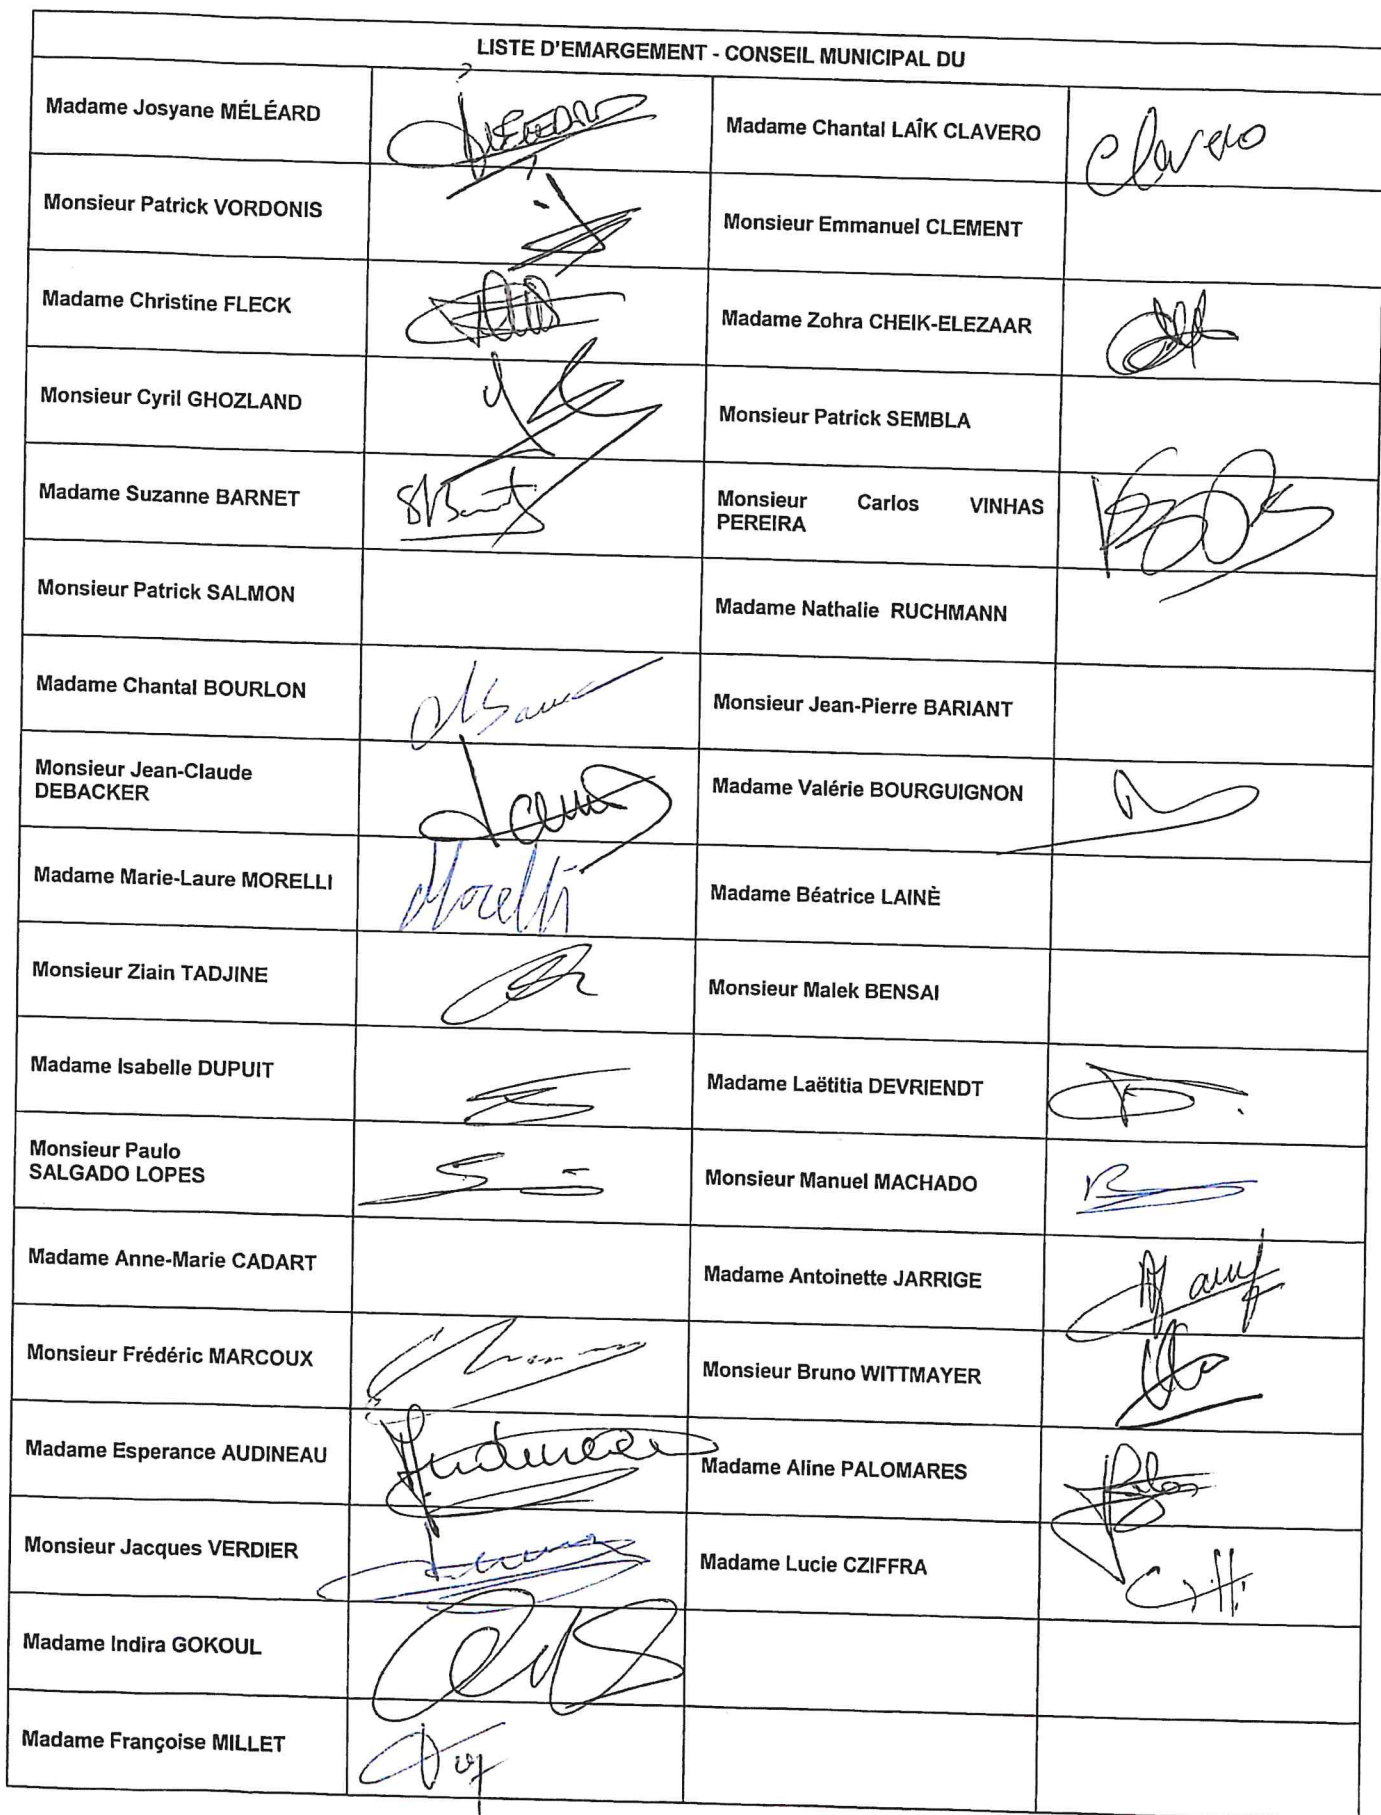 LISTE D'EMARGEMENT - CONSEIL MUNICIPAL DU
Madame Josyane MÉLÉARD
Madame Chantal LAÎK CLAVERO
Clavero
Monsieur Patrick VORDONIS
Monsieur Emmanuel CLEMENT
Madame Christine FLECK
Madame Zohra CHEIK-ELEZAAR
Monsieur Cyril GHOZLAND
Monsieur Patrick SEMBLA
Madame Suzanne BARNET
Monsieur Carlos VINHAS
PEREIRA
Monsieur Patrick SALMON
Madame Nathalie RUCHMANN
Madame Chantal BOURLON
Monsieur Jean-Pierre BARIANT
Monsieur Jean-Claude
DEBACKER
Madame Valérie BOURGUIGNON
Madame Marie-Laure MORELLI
Morelli
Madame Béatrice LAINÈ
Monsieur Ziain TADJINE
Monsieur Malek BENSAI
Madame Isabelle DUPUIT
Madame Laëtitia DEVRIENDT
Monsieur Paulo
SALGADO LOPES
Monsieur Manuel MACHADO
Madame Anne-Marie CADART
Madame Antoinette JARRIGE
Monsieur Frédéric MARCOUX
Monsieur Bruno WITTMAYER
Madame Esperance AUDINEAU
Audineau
Madame Aline PALOMARES
Monsieur Jacques VERDIER
Madame Lucie CZIFFRA
Madame Indira GOKOUL
Madame Françoise MILLET